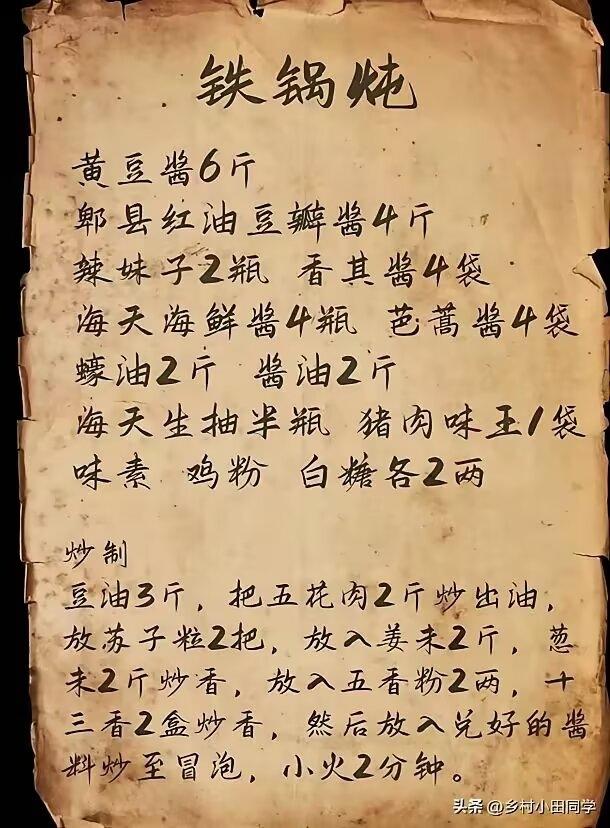 铁锅炖
黄豆酱6斤
郫县红油豆瓣酱4斤
辣妹子2瓶 香其酱4袋
海天海鲜酱4瓶 芭蒿酱4袋
蠔油2斤 酱油2斤
海天生抽半瓶 猪肉味王1袋
味素 鸡粉 白糖各2两
炒制
豆油3斤,把五花肉2斤炒出油,
放苏子粒2把,放入姜末2斤,葱
末2斤炒香,放入五香粉2两,十
三香2盒炒香,然后放入兑好的酱
料炒至冒泡,小火2分钟。
头条 @乡村小田同学